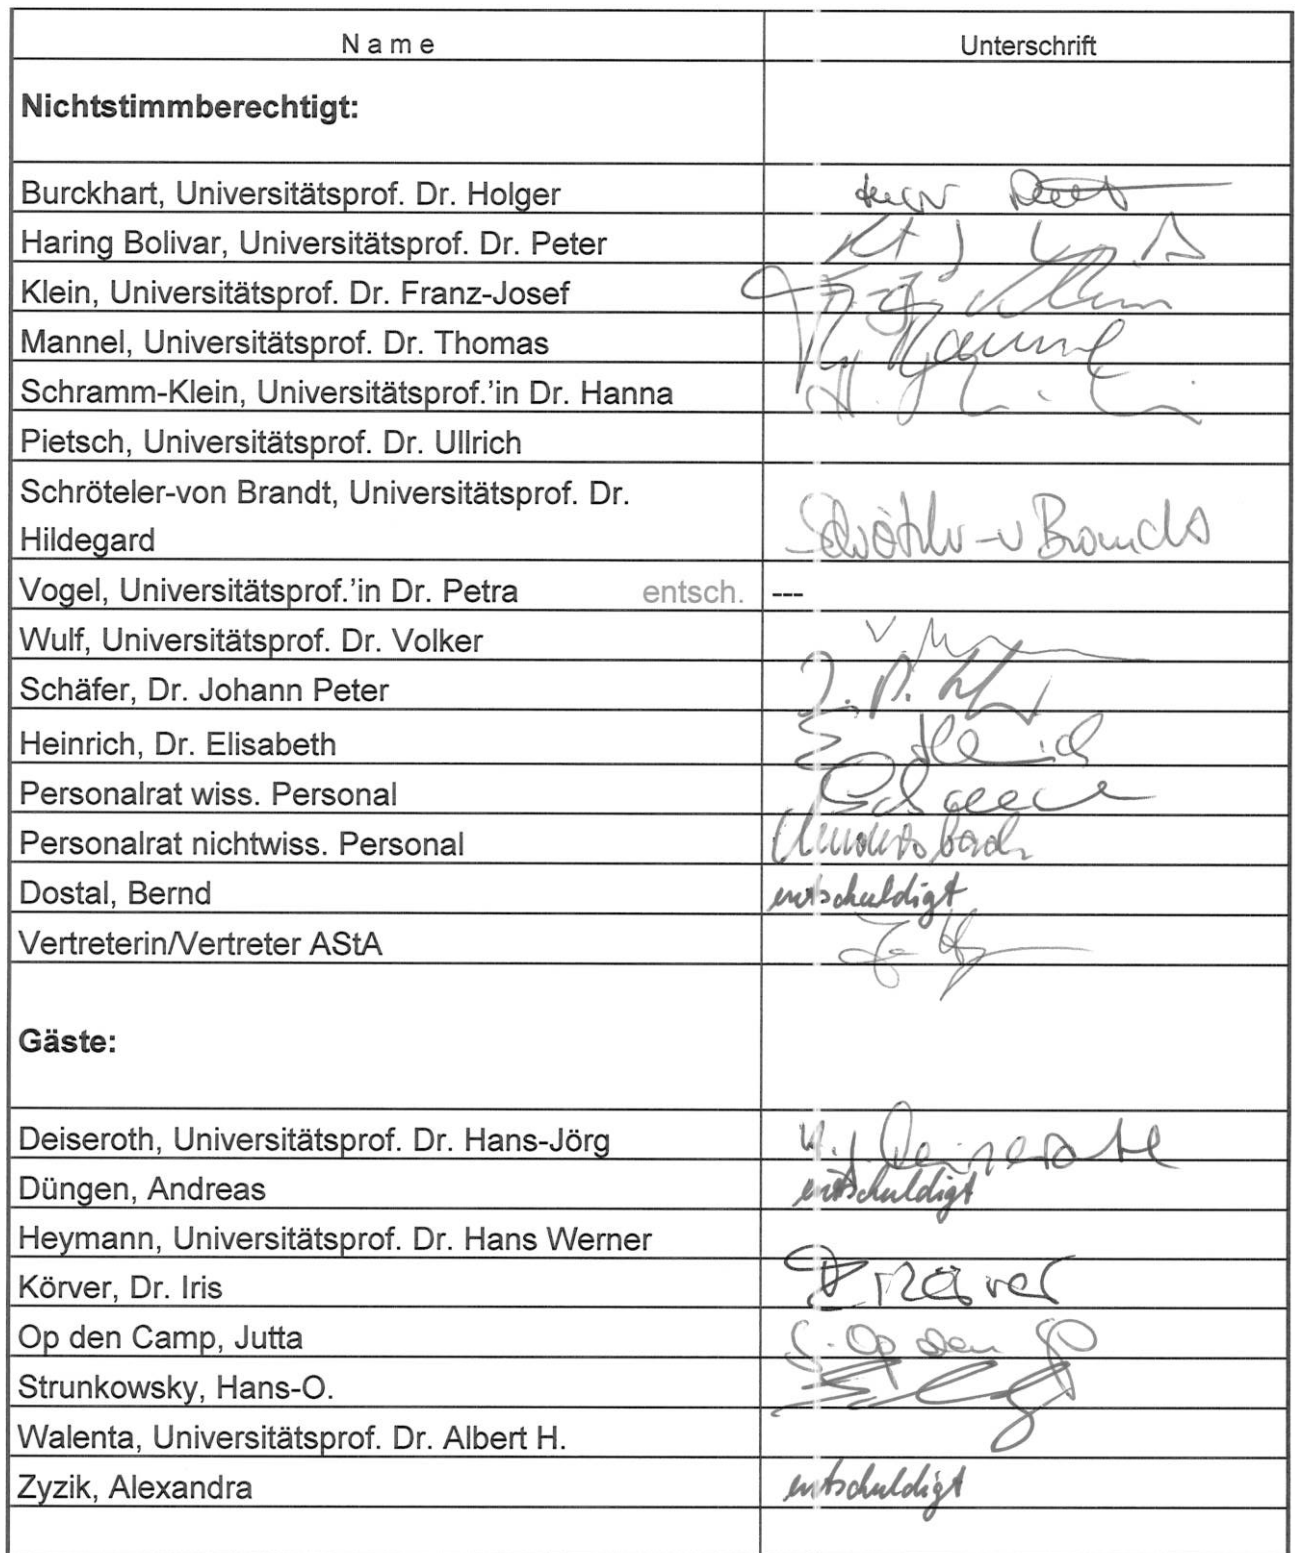 Name Unterschrift
Nichtstimmberechtigt:
Burckhart, Universitätsprof. Dr. Holger
Haring Bolivar, Universitätsprof. Dr. Peter
Klein, Universitätsprof. Dr. Franz-Josef
Mannel, Universitätsprof. Dr. Thomas
Schramm-Klein, Universitätsprof.'in Dr. Hanna
Pietsch, Universitätsprof. Dr. Ullrich
Schröteler-von Brandt, Universitätsprof. Dr.
Hildegard
Vogel, Universitätsprof.'in Dr. Petra entsch. ---
Wulf, Universitätsprof. Dr. Volker
Schäfer, Dr. Johann Peter
Heinrich, Dr. Elisabeth
Personalrat wiss. Personal
Personalrat nichtwiss. Personal
Dostal, Bernd entschuldigt
Vertreterin/Vertreter AStA
Gäste:
Deiseroth, Universitätsprof. Dr. Hans-Jörg H.J. Deiseroth
Düngen, Andreas entschuldigt
Heymann, Universitätsprof. Dr. Hans Werner
Körver, Dr. Iris
Op den Camp, Jutta
Strunkowsky, Hans-O.
Walenta, Universitätsprof. Dr. Albert H.
Zyzik, Alexandra entschuldigt